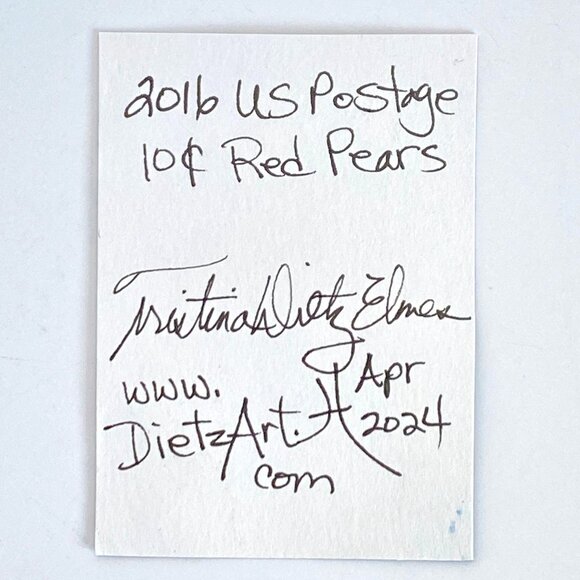 2016 US Postage
10¢ Red Pears
Tristina Dietz Elmes
www.
DietzArt.
com
Apr
2024